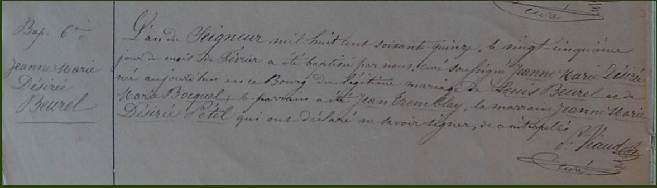 Bap. 6me
Jeanne Marie
Désirée
Beurel
L'an du Seigneur mil huit cent soixante quinze, le vingt cinquième
jour du mois de Février a été baptisée par nous curé soussigné Jeanne Marie Désirée
née aujourd'hui en ce Bourg du légitime mariage de Louis Beurel et de
Marie Bocquel; le parrain a été Jean Tremblay, la marraine Jeanne Marie
Désirée Petit qui ont déclaré ne savoir signer, de ce interpellés
curé